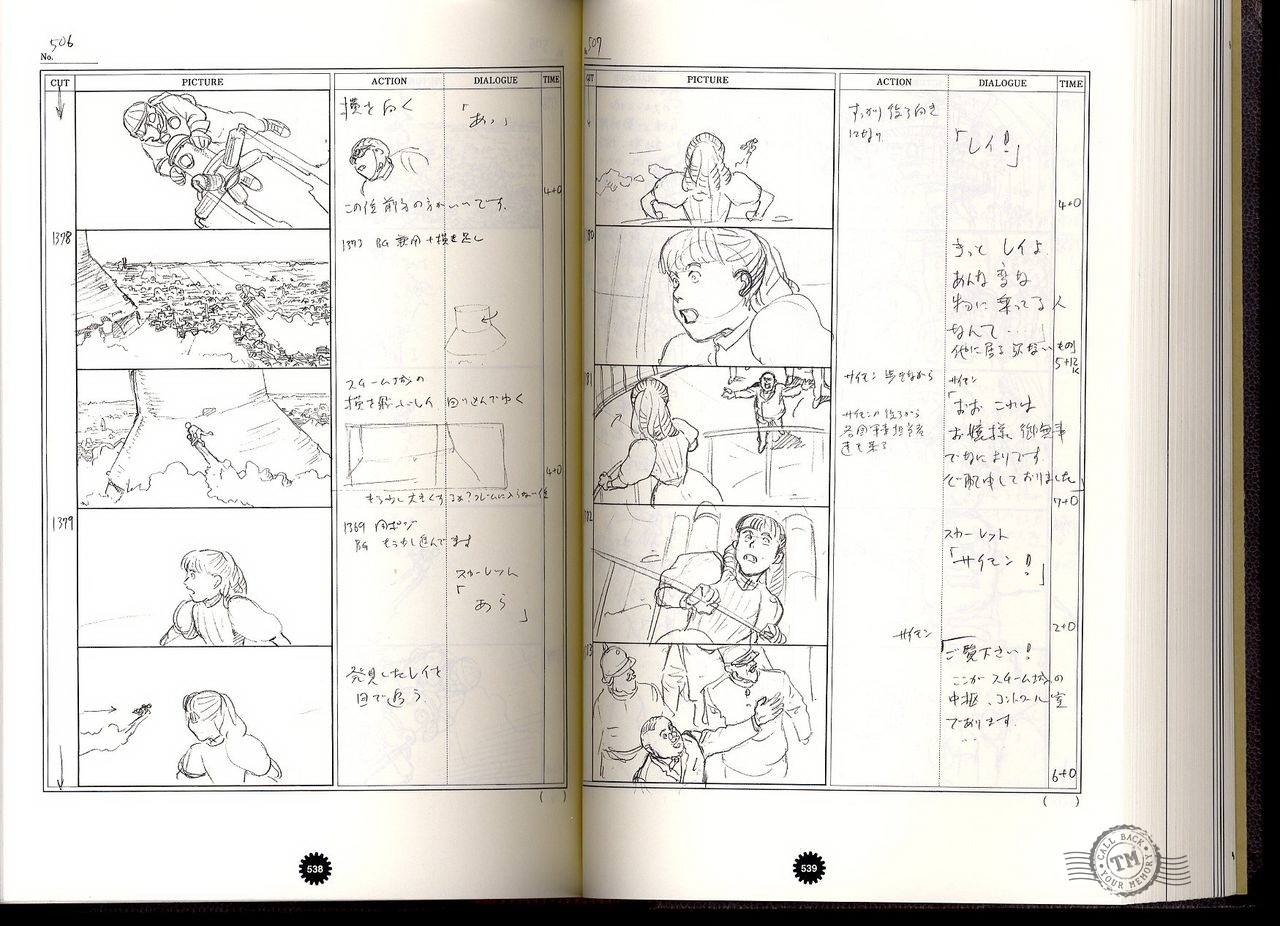 506
No.
CUT
PICTURE
ACTION
DIALOGUE
TIME
横を向く
「あっ」
この位前みの方がいいです。
4+0
1378
1373 BG 兼用+横を足し
スチーム城の
横を飛ぶレイ 回り込んでゆく
もう少し大きくする
4+0
1379
1369 同ポジ
BG もう少し進んでます
スカーレット
「あら」
発見したレイを
目で追う
538
507
CUT
PICTURE
ACTION
DIALOGUE
TIME
すっかり後ろ向き
になり
「レイ!」
4+0
80
きっと レイよ
あんな 変な
物に 乗ってる人
なんて…
他に居る 訳ないもの」
5+12
K
81
サイモン 歩きながら
サイモンの後ろから
各国軍事担当者
達も来る
サイモン
「おお これは
お嬢様、御無事
でなによりです。
心配申しておりました」
7+0
82
スカーレット
「サイモン!」
2+0
83
サイモン
「ご覧下さい!
ここが スチーム城の
中枢、コントロール室
であります。
…
6+0
539
CALL BACK
TM
YOUR MEMORY